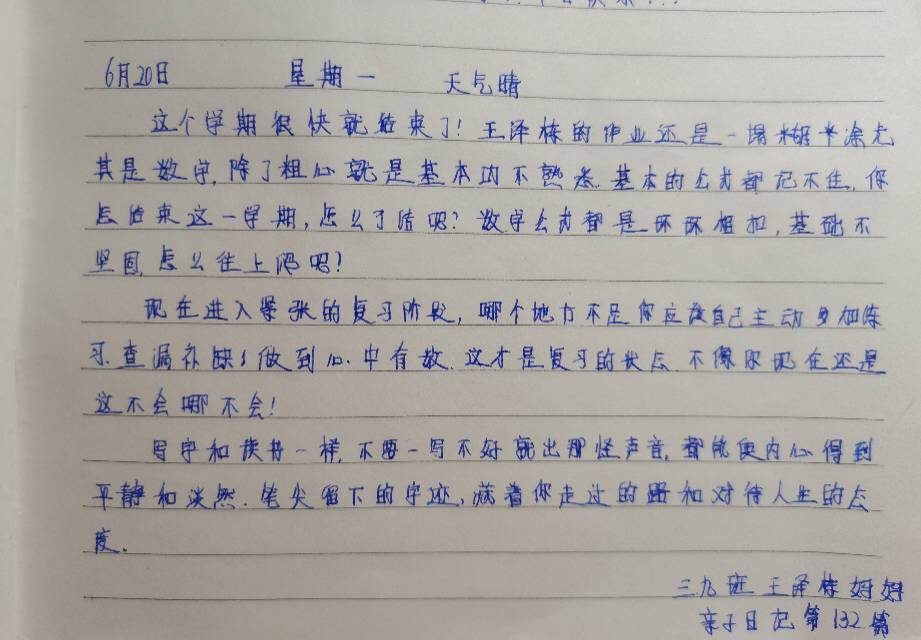 6月20日 星期一 天气晴
这个学期很快就结束了！王泽栋的作业还是一塌糊涂尤
其是数学,除了粗心就是基本功不熟悉.基本的公式都记不住,你
怎结束这一学期,怎么了结呢?数学公式都是环环相扣,基础不
坚固,怎么往上爬呢?
现在进入紧张的复习阶段,哪个地方不足你应该自己主动多加练
习.查漏补缺,做到心中有数.这才是复习的状态.不像你现在还是
这不会哪不会!
写字和读书一样,不要一写不好就出那怪声音,都能使内心得到
平静和淡然.笔尖留下的字迹,满着你走过的路和对待人生的态
度.
三九班王泽栋妈妈
亲子日记第132篇